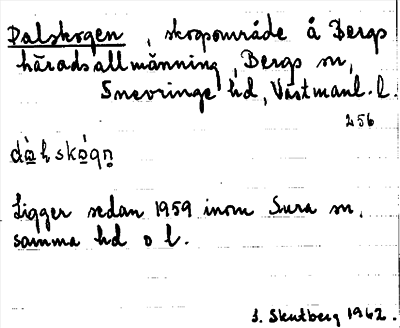 Dalskogen, skogsområde å Bergs
häradsallmänning, Bergs sn,
Snevringe hd, Västmanl. l.
256
dàhskógn̥
Ligger sedan 1959 inom Sura sn,
samma hd o l.
S. Skutberg 1962.